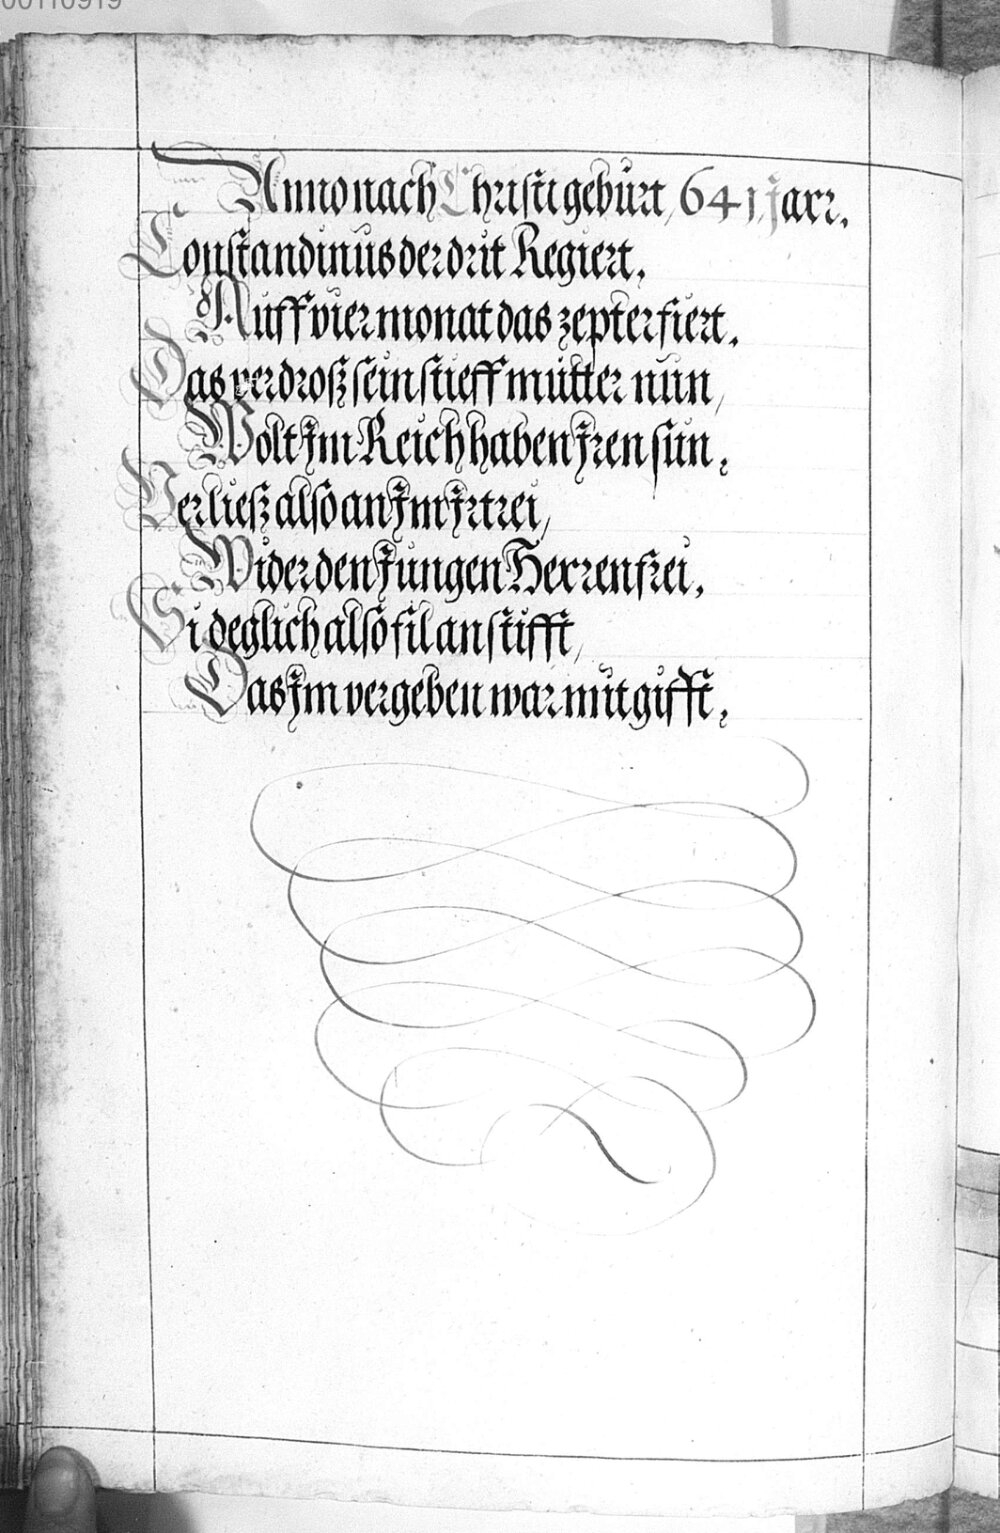 00110919
Anno nach Christi gebürt, 641 Jarr.
Constandinüs der drit Regiert,
Auff vier monat das zepter fiert.
Das verdroß sein stieff mütter nün,
Wolt Im Reich haben Iren sün,
Verließ also an Im Irtrei,
Wider den Jüngen Herren frei.
Si deglich also fil anstifft,
Das Im vergeben war mit gifft,